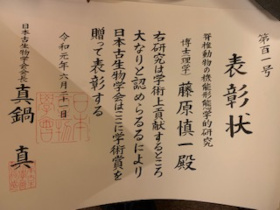 第百一号
表彰状
脊椎動物の機能形態学的研究
博士(理学) 藤原慎一殿
右研究は学術上貢献するところ
大なりと認めらるるにより
日本古生物学会はここに学術賞を
贈って表彰する
令和元年六月二十一日
日本古生物学会会長 真鍋 真